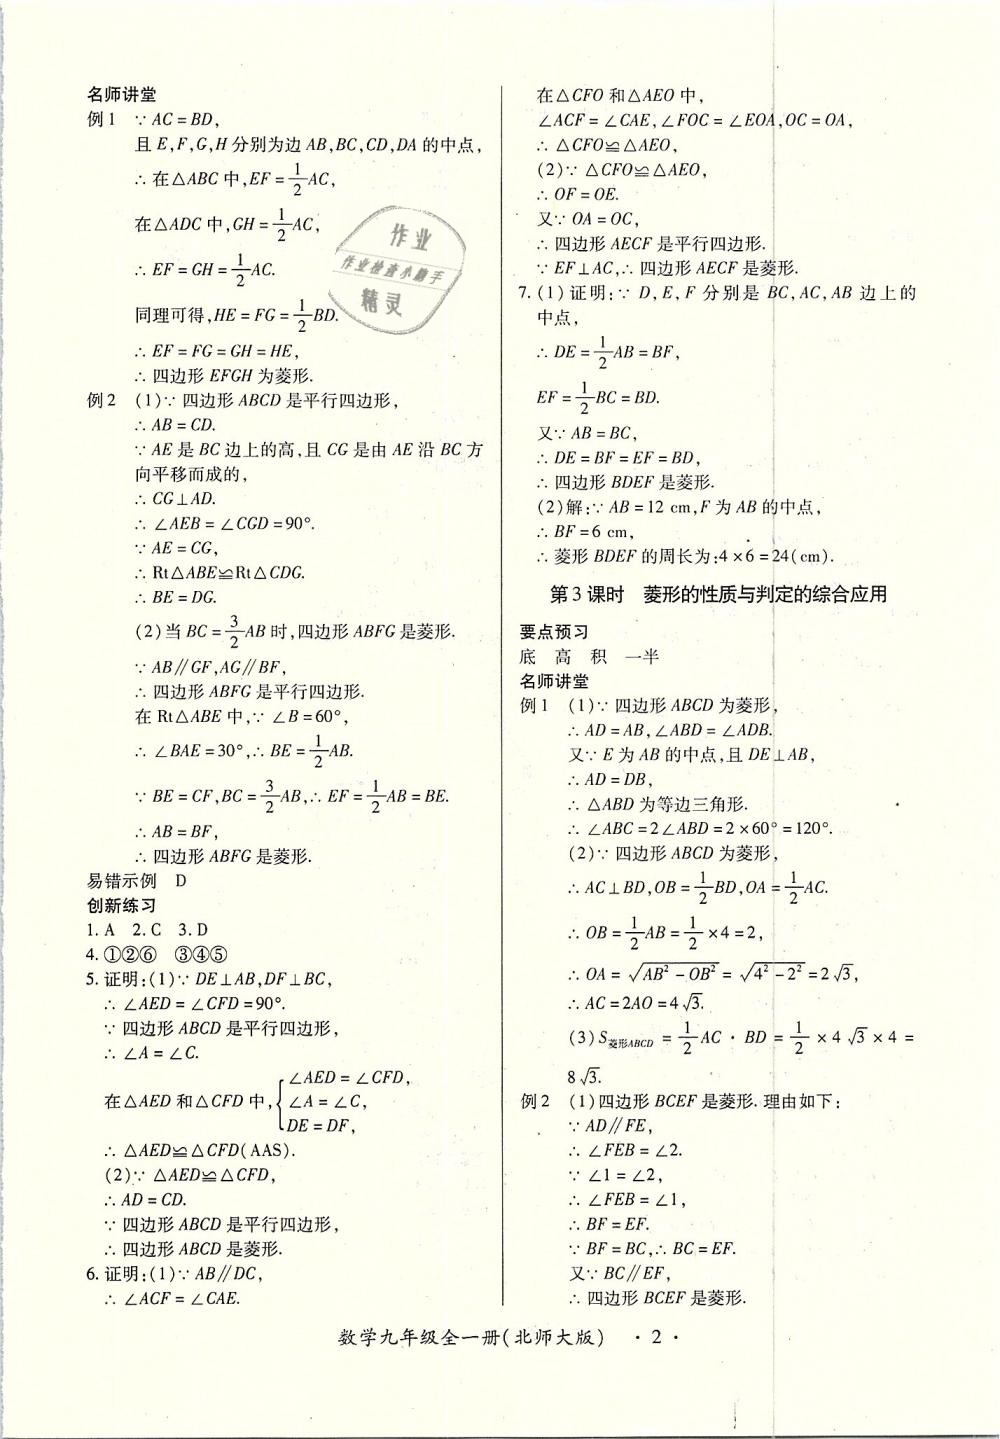 名师讲堂
例1 ∵ AC = BD,
且 E,F,G,H 分别为边 AB,BC,CD,DA 的中点,
∴ 在△ABC 中,EF = 1/2 AC,
在△ADC 中,GH = 1/2 AC,
∴ EF = GH = 1/2 AC.
同理可得,HE = FG = 1/2 BD.
∴ EF = FG = GH = HE,
∴ 四边形 EFGH 为菱形.
例2 (1)∵ 四边形 ABCD 是平行四边形,
∴ AB = CD.
∵ AE 是 BC 边上的高,且 CG 是由 AE 沿 BC 方
向平移而成的,
∴ CG⊥AD.
∴ ∠AEB = ∠CGD = 90°.
∵ AE = CG,
∴ Rt△ABE≌Rt△CDG.
∴ BE = DG.
(2)当 BC = 3/2 AB 时,四边形 ABFG 是菱形.
∵ AB∥GF,AG∥BF,
∴ 四边形 ABFG 是平行四边形.
在 Rt△ABE 中,∵ ∠B = 60°,
∴ ∠BAE = 30°,∴ BE = 1/2 AB.
∵ BE = CF,BC = 3/2 AB,∴ EF = 1/2 AB = BE.
∴ AB = BF,
∴ 四边形 ABFG 是菱形.
易错示例 D
创新练习
1. A 2. C 3. D
4. ①②⑥ ③④⑤
5. 证明:(1)∵ DE⊥AB,DF⊥BC,
∴ ∠AED = ∠CFD = 90°.
∵ 四边形 ABCD 是平行四边形,
∴ ∠A = ∠C.
在△AED 和△CFD 中,{∠AED = ∠CFD,
∠A = ∠C,
DE = DF,
∴ △AED≌△CFD(AAS).
(2)∵ △AED≌△CFD,
∴ AD = CD.
∵ 四边形 ABCD 是平行四边形,
∴ 四边形 ABCD 是菱形.
6. 证明:(1)∵ AB∥DC,
∴ ∠ACF = ∠CAE.
作业
作业检查小助手
精灵
在△CFO 和△AEO 中,
∠ACF = ∠CAE,∠FOC = ∠EOA,OC = OA,
∴ △CFO≌△AEO,
(2)∵ △CFO≌△AEO,
∴ OF = OE.
又∵ OA = OC,
∴ 四边形 AECF 是平行四边形.
∵ EF⊥AC,∴ 四边形 AECF 是菱形.
7. (1)证明:∵ D,E,F 分别是 BC,AC,AB 边上的
中点,
∴ DE = 1/2 AB = BF,
EF = 1/2 BC = BD.
又∵ AB = BC,
∴ DE = BF = EF = BD,
∴ 四边形 BDEF 是菱形.
(2)解:∵ AB = 12 cm,F 为 AB 的中点,
∴ BF = 6 cm,
∴ 菱形 BDEF 的周长为:4 × 6 = 24(cm).
第3课时 菱形的性质与判定的综合应用
要点预习
底 高 积 一半
名师讲堂
例1 (1)∵ 四边形 ABCD 为菱形,
∴ AD = AB,∠ABD = ∠ADB.
又∵ E 为 AB 的中点,且 DE⊥AB,
∴ AD = DB,
∴ △ABD 为等边三角形.
∴ ∠ABC = 2∠ABD = 2 × 60° = 120°.
(2)∵ 四边形 ABCD 为菱形,
∴ AC⊥BD,OB = 1/2 BD,OA = 1/2 AC.
∴ OB = 1/2 AB = 1/2 × 4 = 2,
∴ OA = √(AB² − OB²) = √(4² − 2²) = 2√3,
∴ AC = 2AO = 4√3.
(3)S菱形ABCD = 1/2 AC · BD = 1/2 × 4√3 × 4 =
8√3.
例2 (1)四边形 BCEF 是菱形. 理由如下:
∵ AD∥FE,
∴ ∠FEB = ∠2.
∵ ∠1 = ∠2,
∴ ∠FEB = ∠1,
∴ BF = EF.
∵ BF = BC,∴ BC = EF.
又∵ BC∥EF,
∴ 四边形 BCEF 是菱形.
数学九年级全一册(北师大版) · 2 ·